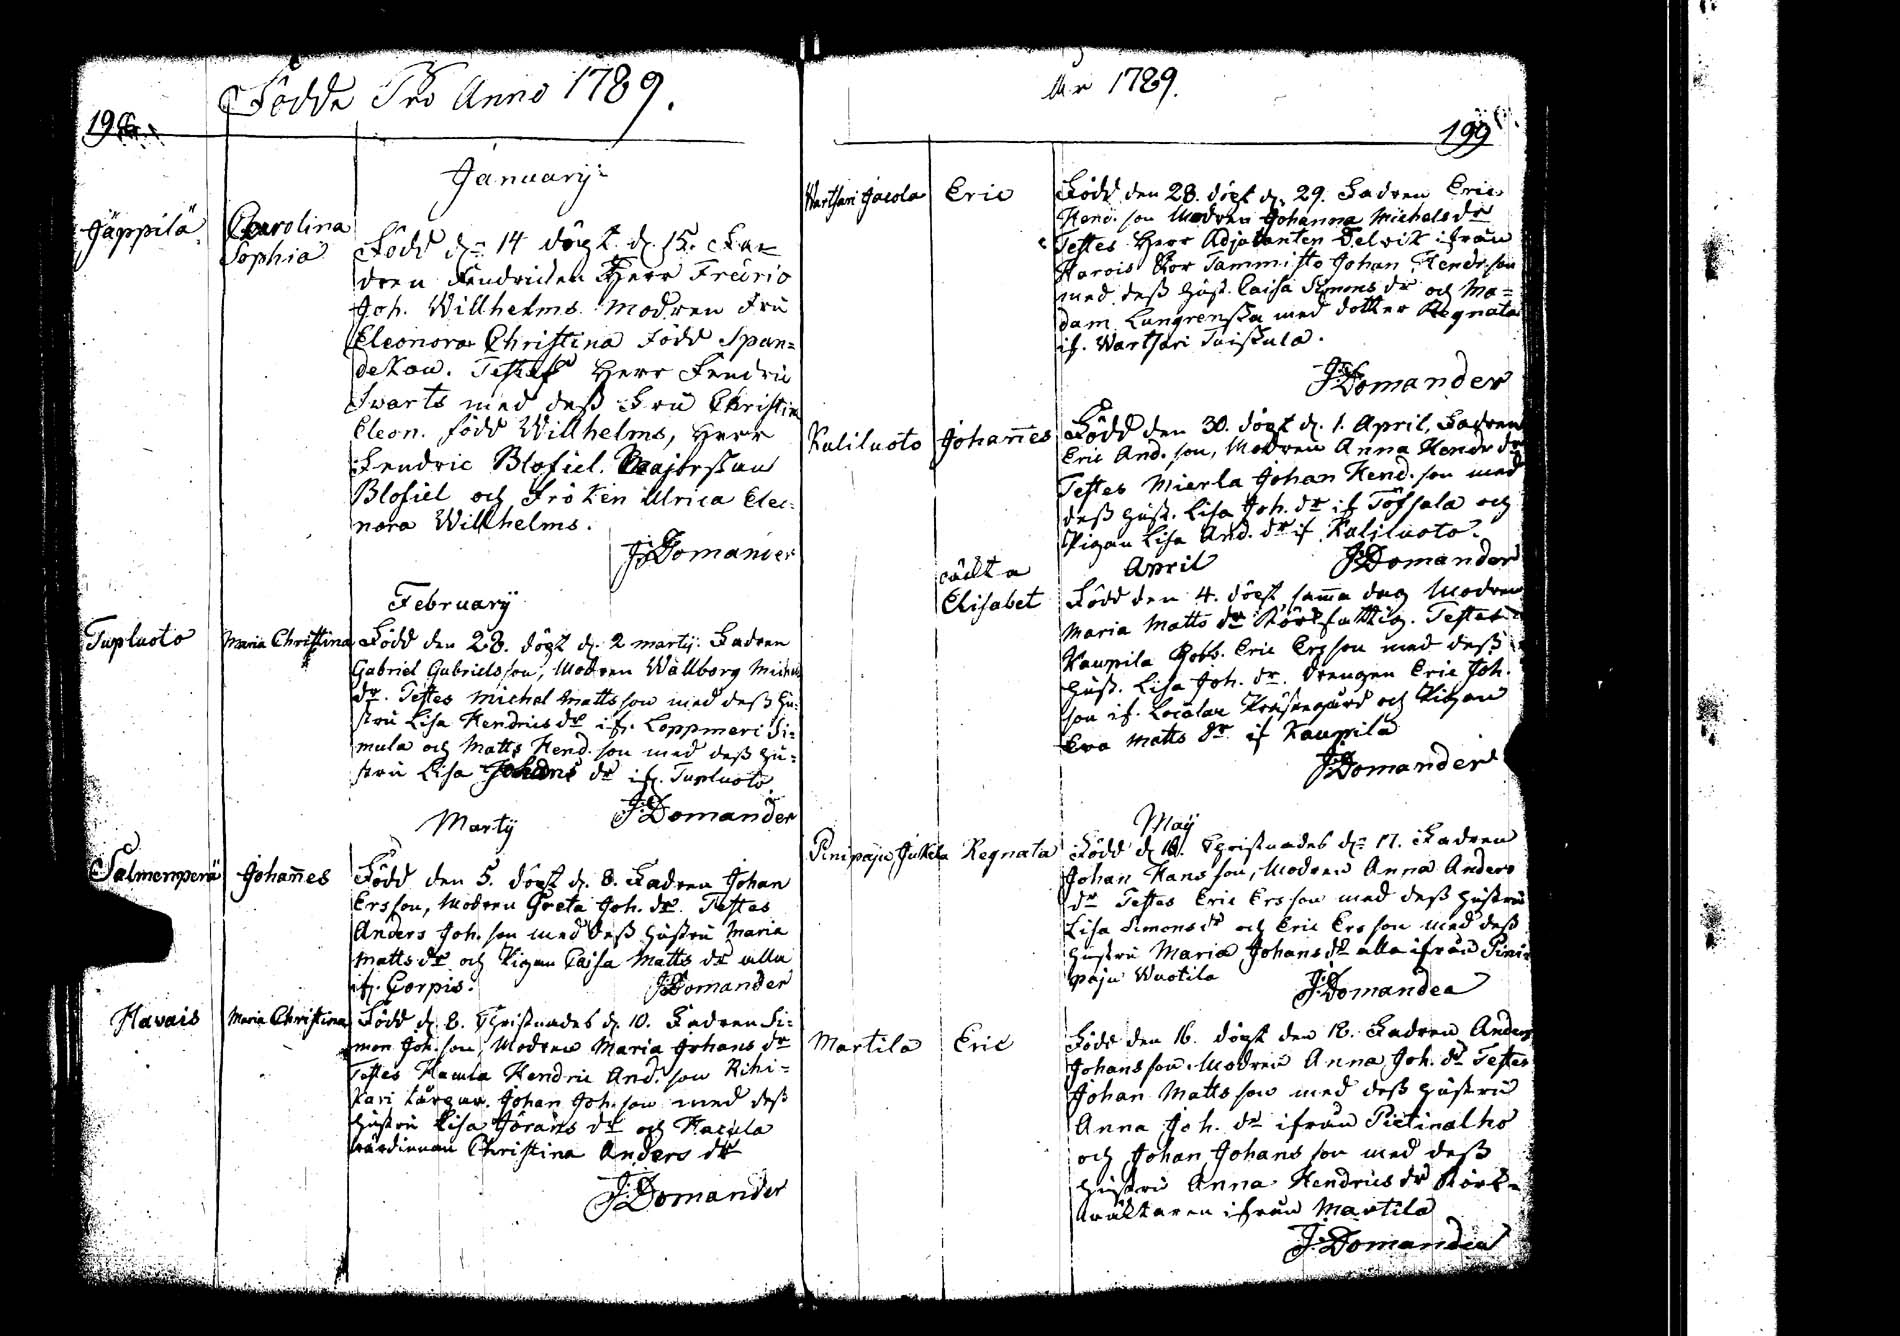 Födde Pro Anno 1789.
198
January
Jäppilä
Carolina
Sophia
Född d. 14 döpt d. 15. Fa-
dren Fendricken Herr Fredric
Joh. Willhelms. Modren Fru
Eleonora Christina Född Span-
dekow. Testes Herr Fendric
Swarts med dess Fru Christin
Eleon. född Willhelms, Herr
Fendric Blofiel. Majorskan
Blofiel och Fröken Ulrica Eleo-
nora Willhelms.
J: Domander
February
Tupluoto
Maria Christina
Född den 28. döpt d. 2 martij. Fadren
Gabriel Gabrielsson, Modren Wallborg Michels
dr. Testes Michel Mattsson med dess hu-
stru Lisa Hendrics dr if. Loppmeri Si-
mula och Matts Hend. son med dess hu-
stru Lisa Johans dr if. Tupluoto.
J: Domander
Martij
Salmenperä
Johannes
Född den 5. döpt d. 8. Fadren Johan
Ersson, Modren Greta Joh. dr. Testes
Anders Joh. son med dess hustru Maria
Matts dr och Pigan Caisa Matts dr alla
if. Corpis.
J: Domander
Havais
Maria Christina
Född d. 8. Christnades d. 10. Fadren Si-
mon Joh. son, Modren Maria Johans dr
Testes Hacula Hendric And. son Rihi-
kari Johan Joh. son med dess
hustru Lisa Görans dr och Hacula
värdinnan Christina Anders dr
J: Domander
Ao 1789.
199
Wartsari Jacola
Eric
Född den 28. döpt d. 29. Fadren Eric
Hend. son Modren Johanna Michels dr
Testes Herr Adjutanten Delvik ifrån
Havois Stor Tammisto Johan Hendr. son
med dess hust. Caisa Simons dr och Ma-
dam Lungrenska med dotter Regnata
if. Wartsari Taiskula.
J: Domander
Kaliluoto
Johannes
Född den 30. döpt d. 1. April, Fadren
Eric And. son, Modren Anna Hendr dr
Testes Mierla Johan Hend. son med
dess hust. Lisa Joh. dr if Töfsala och
Pigan Lisa And. dr if Kaliluoto.
J: Domander
April
oäkta
Elisabet
Född den 4. döpt samma dag Modren
Maria Matts dr Körkfattig. Testes
Kaupila Eric Ersson med dess
hust. Lisa Joh. dr. Drengen Eric Joh.
son if. Localax Prästegård och Pigan
Eva Matts dr if Kaupila
J: Domander
Maij
Pinipaju Jukola
Regnata
Född d. 16. Christnades d. 17. Fadren
Johan Hansson, Modren Anna Anders
dr Testes Eric Ersson med dess hustru
Lisa Simons dr och Eric Ersson med dess
hustru Maria Johans dr alla ifrån Pini-
paju Wuotila
J: Domander
Martila
Eric
Född den 16. döpt den 18. Fadren Anders
Johansson. Modren Anna Joh. dr Testes
Johan Mattsson med dess hustru
Anna Joh. dr ifrån Pietinalho
och Johan Johansson med dess
hustru Anna Hendrics dr Körk-
väktaren ifrån Martila
J: Domander